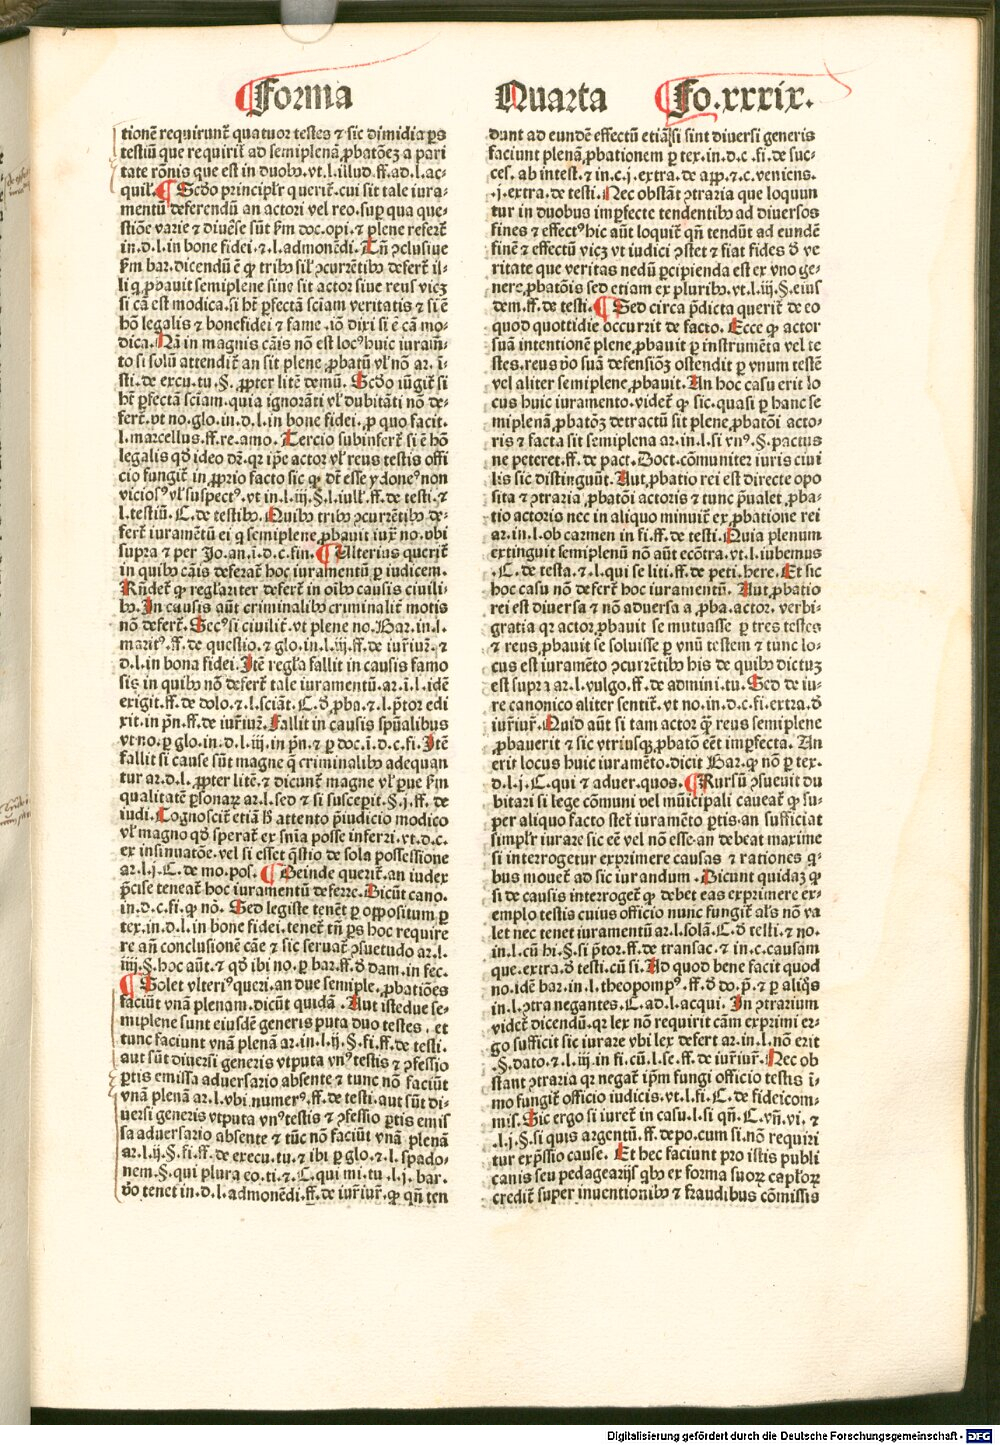 ¶Forma
Quarta ¶Fo.xxxix.
tionē requirunt̃ quatuor testes ⁊ sic dimidia ꝑs
testiū que requirit̃ ad semiplenā ꝓbatōeꝫ a pari
tate rōnis que est in duobꝰ. vt.l.illud.ff.ad.l.ac-
quil̃. ¶ Scd̓o principlr̃ querit̃. cui sit tale iura-
mentū deferendū an actori vel reo. suꝑ qua que-
stiōe varie ⁊ diuēse sūt ẜm doc. opi. ⁊ plene refert̃
in.d.l.in bone fidei.⁊.l.admonēdi. Tn̄ ↄclusiue
ẜm bar. dicendū ē ꝙ tribꝰ sil̓ ↄcurrētibꝰ defert̃ il-
li q̇ ꝓbauit semiplene siue sit actor siue reus vicꝫ
si cā est modica. si ht̃ ꝑfectā sciam veritatis ⁊ si ē
hō legalis ⁊ bonefidei ⁊ fame. iō dixi si ē cā mo-
dica. Nā in magnis cāis nō est locꝰ huic iuramē-
to si solū attendit̃ an sit plene ꝓbatū vl̓ nō ar. ī-
sti. de excu. tu. §. ꝓpter litē demū. Scd̓o iūgit̃ si
ht̃ ꝑfectā sciam. quia ignorāti vl̓ dubitāti nō de-
fert̃. vt no. glo. in.d.l.in bone fidei. ꝓ quo facit.
l.marcellus.ff.re.amo. Tercio subinfert̃ si ē hō
legalis qd̓ ideo dr̄. qr ip̄e actor vl̓ reus testis offi
cio fungit̃ in ꝓprio facto sic ꝙ dt̃ esse ydoneꝰ non
viciosꝰ vl̓ suspectꝰ. vt in.l.iij.§.l.iul̓l.ff.de testi.⁊
l.testiū. C.de testibꝰ. Quibꝰ tribꝰ ↄcurrētibꝰ de-
fert̃ iuramētū ei q̇ semiplene ꝓbauit iux̄ no. vbi
supra ⁊ per Jo. an. ī.d.c.fin. ¶ Ulterius querit̃
in quibꝰ cāis deferat̃ hoc iuramentū ꝑ iudicem.
Rn̄det̃ ꝙ regl̓ariter defert̃ in oībꝰ causis ciuili-
bꝰ. In causis aūt criminalibꝰ criminalit̃ motis
nō defert̃. Secꝰ si ciuilit̃. vt plene no. Bar. in.l.
maritꝰ.ff.de questio.⁊ glo.in.l.iij.ff.de iur̄iur̄. ⁊
d.l.in bona fidei. Itē regl̓a fallit in causis famo
sis in quibꝰ nō defert̃ tale iuramentū. ar. ī.l.idē
exigit.ff.de dolo.⁊.l.sciāt. C.d̓ ꝓba.⁊.l.p̄tor edi
xit. in pn̄.ff.de iur̄iur̄. Fallit in causis spūalibus
vt no. ꝑ glo. in.d.l.iij.in pn̄.⁊ ꝑ doc. ī.d.c.fi. Itē
fallit si cause sūt magne q̄ criminalibꝰ adequan
tur ar.d.l.ꝓpter litē.⁊ dicunt̃ magne vl̓ ꝑue ẜm
qualitatē ꝑsonaꝝ ar.l.sed ⁊ si suscepit.§.j.ff.de
iudi. Cognoscit̃ etiā hꝫ attento p̄iudicio modico
vl̓ magno qd̓ sperat̃ ex sn̄ia posse inferri. vt.d.c.
ex insinuatōe. vel si esset q̄stio de sola possessione
ar.l.j.C.de mo.pos. ¶ Deinde querit̃. an iudex
p̄cise teneat̃ hoc iuramentū deferre. Dicūt cano.
in.d.c.fi.ꝙ nō. Sed legiste tenēt ꝑ oppositum ꝑ
tex.in.d.l.in bone fidei. tenet̃ tn̄ ꝑs hoc require
re an̄ conclusionē cāe ⁊ sic seruat̃ ↄsuetudo ar.l.
iiij.§.hoc aūt.⁊ qd̓ ibi no. ꝑ bar.ff.d̓ dam.in fec.
¶ Solet vlteriꝰ queri. an due semiple. ꝓbatiōes
faciūt vnā plenam. dicūt quidā. Aut iste due se-
miplene sunt eiusdē generis puta duo testes. et
tunc faciunt vnā plenā ar. in.l.ij.§.fi.ff.de testi.
aut sūt diuersi generis vtputa vnꝰ testis ⁊ ↄfessio
ꝑtis emissa aduersario absente ⁊ tunc nō faciūt
vnā plenā ar.l.vbi numerꝰ.ff.de testi. aut sūt di-
uersi generis vtputa vnꝰ testis ⁊ ↄfessio ꝑtis emis
sa aduersario absente ⁊ tūc nō faciūt vnā plenā
ar.l.ij.§.fi.ff.de execu.tu.⁊ ibi ꝑ glo.⁊.l.spado-
nem.§.qui plura eo.ti.⁊ C.qui mi.tu.l.j. bar.
v̓o tenet in.d.l.admonēdi.ff.de iur̄iur̄. ꝙ qn̄ ten
dunt ad eundē effectū etiā si sint diuersi generis
faciunt plenā ꝓbationem ꝑ tex.in.d.c.fi.de suc-
ces. ab intest.⁊ in.c.j.extra.de apꝑ.⁊ c.veniens.
.j.extra.de testi. Nec obstāt ↄtraria que loquun
tur in duobus imꝑfecte tendentibꝰ ad diuersos
fines ⁊ effectꝰ hic aūt loquit̃ qn̄ tendūt ad eundē
finē ⁊ effectū vicꝫ vt iudici ↄstet ⁊ fiat fides d̓ ve
ritate que veritas nedū ꝑcipienda est ex vno ge-
nere ꝓbatōis sed etiam ex pluribꝰ. vt.l.iij.§.eius
dem.ff.de testi. ¶ Sed circa p̄dicta querit̃ de eo
quod quottidie occurrit de facto. Ecce ꝙ actor
suā intentionē plene ꝓbauit ꝑ instrumēta vel te
stes. reus v̓o suā defensiōꝫ ostendit ꝑ vnum testē
vel aliter semiplene ꝓbauit. An hoc casu erit lo
cus huic iuramento. videt̃ ꝙ sic. quasi ꝑ hanc se
miplenā ꝓbatōꝫ detractū sit plene ꝓbatōi acto-
ris ⁊ facta sit semiplena ar. in.l.si vnꝰ.§.pactus
ne peteret.ff.de pact. Doct. cōmuniter iuris ciui
lis sic distinguūt. Aut ꝓbatio rei est directe opo
sita ⁊ ↄtraria ꝓbatōi actoris ⁊ tunc p̄ualet ꝓba-
tio actoris nec in aliquo minuit̃ ex ꝓbatione rei
ar. in.l.ob carmen in fi.ff.de testi. Quia plenum
extinguit semiplenū nō aūt ecōtra. vt.l.iubemus
.C.de testa.⁊.l.qui se liti.ff.de peti.here. Et sic
hoc casu nō defert̃ hoc iuramentū. Aut ꝓbatio
rei est diuersa ⁊ nō aduersa a ꝓba. actor. verbi
gratia qr actor ꝓbauit se mutuasse ꝑ tres testes
⁊ reus ꝓbauit se soluisse ꝑ vnū testem ⁊ tunc lo-
cus est iuramēto ↄcurrētibꝰ his de quibꝰ dictuꝫ
est supra ar.l.vulgo.ff.de admini.tu. Sed de iu-
re canonico aliter sentit̃. vt no. in.d.c.fi.extra.d̓
iur̄iur̄. Quid aūt si tam actor q̄ꝫ reus semiplene
ꝓbauerit ⁊ sic vtriusqꝫ ꝓbatō eēt imꝑfecta. An
erit locus huic iuramēto. dicit Bar. ꝙ nō ꝑ tex.
d.l.j.C.qui ⁊ aduer.quos. ¶ Rursū ↄsueuit du
bitari si lege cōmuni vel mūicipali caueat̃ ꝙ su-
per aliquo facto stet̃ iuramēto ꝑtis. an sufficiat
simplr̃ iurare sic eē vel nō esse. an debeat maxime
si interrogetur exprimere causas ⁊ rationes q̇-
bus mouet̃ ad sic iurandum. Dicunt quidaꝫ ꝙ
si de causis interroget̃ ꝙ debet eas exprimere ex-
emplo testis cuius officio nunc fungit̃ al̓s nō va
let nec tenet iuramentū ar.l.solā. C.d̓ testi.⁊ no.
in.l.cū hi.§.si p̄tor.ff.de transac.⁊ in.c.causam
que.extra.d̓ testi.cū si. Ad quod bene facit quod
no. idē bar. in.l.theopompꝰ.ff.d̓ do.p̄.⁊ ꝑ aliq̄s
in.l.ↄtra negantes. C.ad.l.acqui. In ↄtrarium
videt̃ dicendū. qr lex nō requirit cām exprimi er-
go sufficit sic iurare vbi lex defert ar. in.l.nō erit
.§.dato.⁊.l.iij.in fi.cū.l.se.ff.de iur̄iur̄. Nec ob
stant ↄtraria qr negat̃ ip̄m fungi officio testis ī-
mo fungit̃ officio iudicis. vt.l.fi.C.de fideicom-
mis. Sic ergo si iuret̃ in casu.l.si qn̄. C.vn̄.vi.⁊
.l.j.§.si quis argentū.ff.depo.cum si. nō requiri
tur exp̄ssio cause. Et hec faciunt pro istis publi
canis seu pedagearijs qbꝰ ex forma suoꝝ capl̓oꝝ
credit̃ super inuentionibꝰ ⁊ fraudibus cōmissis
Digitalisierung gefördert durch die Deutsche Forschungsgemeinschaft - DFG